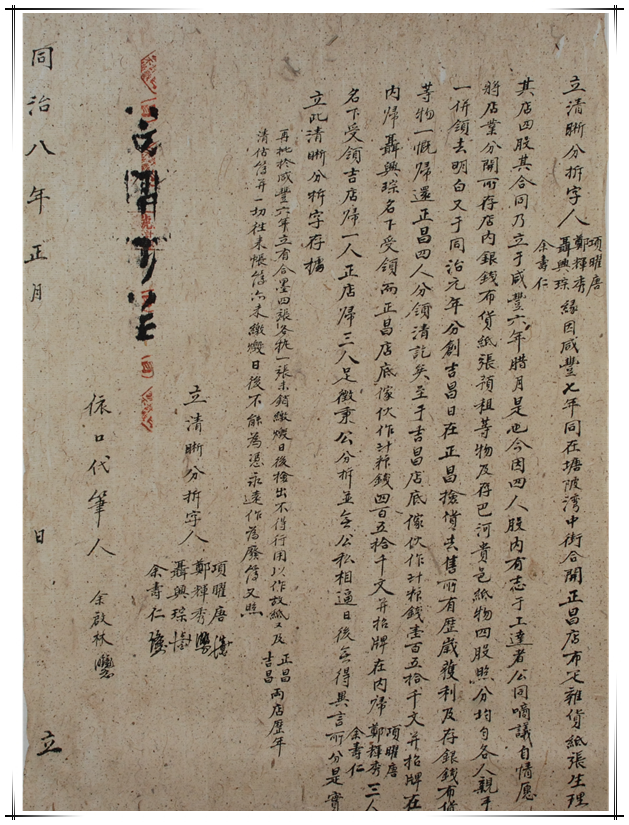 立清晰分拆字人項曜唐鄭輝秀聶興琮余壽仁緣因咸豐七年同在塘陂湾中街合開正昌店布疋雜貨紙張生理
其店四股其合同乃立于咸豐六年腊月是也今因四人股内有志于上達者公同啇議自情愿
將店業分開所存店内銀錢布貨紙張預租等物及存巴河貴邑紙物四股照分均匀各人親手
一併領去明白又于同治元年分創吉昌日在正昌撿貨去售所有歷歲獲利及存銀錢布貨
等物一慨歸還正昌四人分領清訖矣至于吉昌店底傢伙作計粮錢壹百五拾千文并招牌在
内歸聶興琮名下受領而正昌店底傢伙作計粮錢四百五拾千文并招牌在内歸項曜唐鄭輝秀余壽仁三人
名下受領吉店歸一人正店歸三人是徵秉公分拆並無公私相逼日後無得異言所分是實
立此清晰分拆字存據
再批於咸豐六年立有合墨四張各執一張未銷繳燬日後撿出不得行用以作故紙又及正昌吉昌兩店歷年
清估簿并一切往来帳簿亦未繳燬日後不能為憑永遠作為廢簿又照
立清晰分拆字人項曜唐鄭輝秀聶興琮余壽仁
依口代筆人余啟林
同治八年正月日立